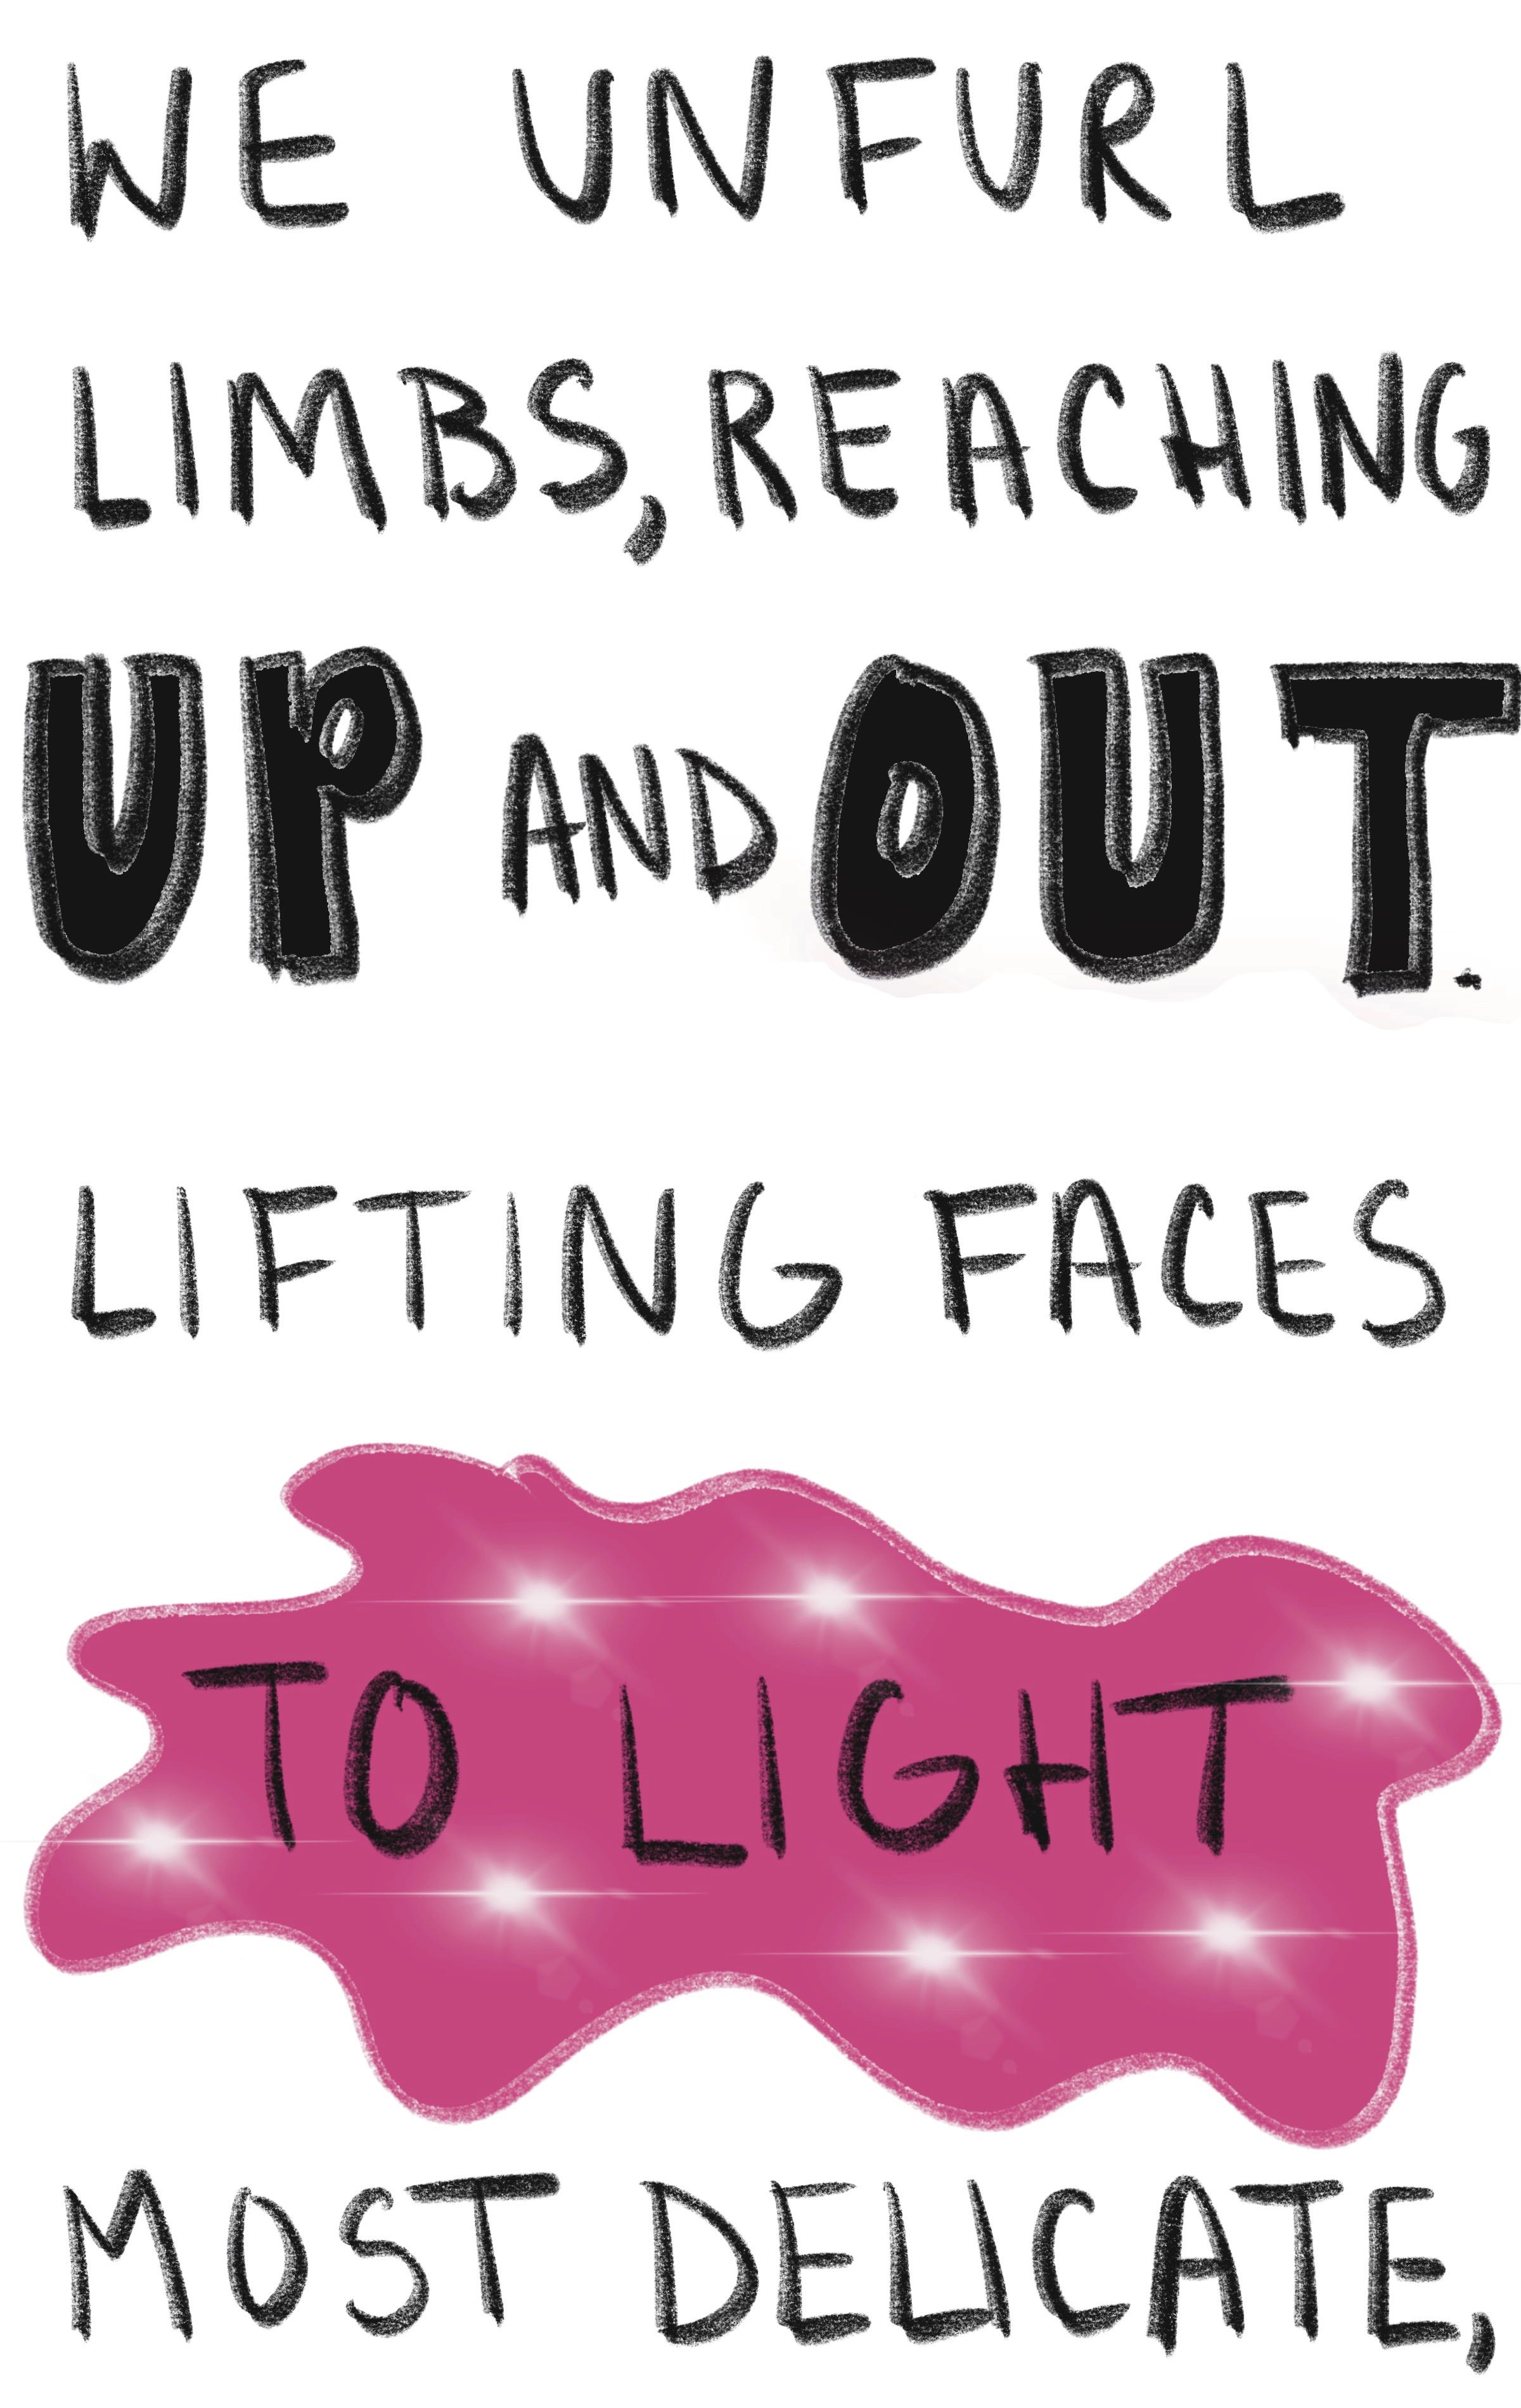 WE UNFURL
LIMBS, REACHING
UP AND OUT.
LIFTING FACES
TO LIGHT
MOST DELICATE,